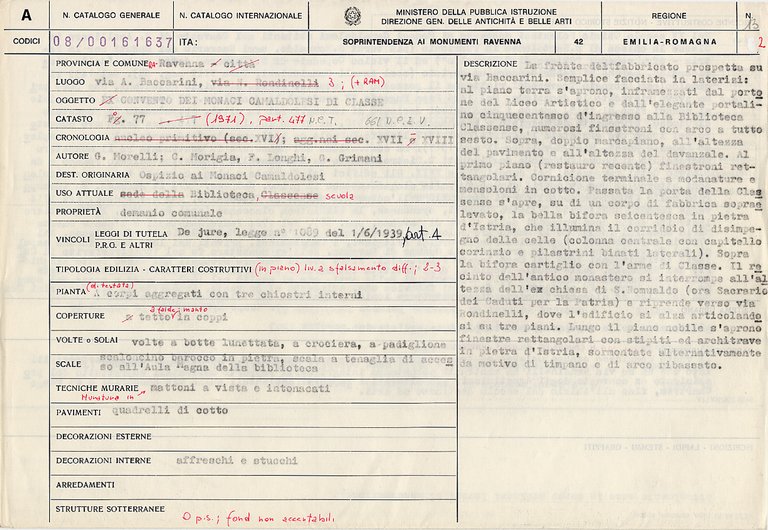 A
N. CATALOGO GENERALE
N. CATALOGO INTERNAZIONALE
MINISTERO DELLA PUBBLICA ISTRUZIONE
DIREZIONE GEN. DELLE ANTICHITÀ E BELLE ARTI
REGIONE
N.
13
CODICI
08/00161637
ITA:
SOPRINTENDENZA AI MONUMENTI RAVENNA
42
EMILIA-ROMAGNA
2
PROVINCIA E COMUNE: Ravenna - città
LUOGO via A. Baccarini, via N. Rondinelli 3 ; (+ RAM)
OGGETTO EX CONVENTO DEI MONACI CAMALDOLESI DI CLASSE
CATASTO 77 (1971) part. 477
CRONOLOGIA nucleo primitivo (sec. XVI); agg.nei sec. XVII - XVIII
AUTORE G. Morelli; C. Morigia, F. Longhi, G. Grimani
DEST. ORIGINARIA Ospizio ai Monaci Camaldolesi
USO ATTUALE sede della Biblioteca Classense scuola
PROPRIETÀ demanio comunale
VINCOLI LEGGI DI TUTELA De jure, legge n° 1089 del 1/6/1939, art. 4
P.R.G. E ALTRI
TIPOLOGIA EDILIZIA - CARATTERI COSTRUTTIVI (in piano) liv. a sfalsamento diff. ; 2-3
PIANTA (di testata) A corpi aggregati con tre chiostri interni
COPERTURE 2 falde; manto a tetto in coppi
VOLTE o SOLAI volte a botte lunettata, a crociera, a padiglione
SCALE scaloncino barocco in pietra, scala a tenaglia di acces
so all'Aula Magna della biblioteca
TECNICHE MURARIE mattoni a vista e intonacati
Muratura in
PAVIMENTI quadrelli di cotto
DECORAZIONI ESTERNE
DECORAZIONI INTERNE affreschi e stucchi
ARREDAMENTI
STRUTTURE SOTTERRANEE
0 p.s. ; fond non accertabili
DESCRIZIONE La fronte del fabbricato prospetta su
via Baccarini. Semplice facciata in laterizi:
al piano terra s'aprono, inframezzati dal porto
ne del Liceo Artistico e dall'elegante portali-
no cinquecentesco d'ingresso alla Biblioteca
Classense, numerosi finestroni con arco a tutto
sesto. Sopra, doppio marcapiano, all'altezza
del pavimento e all'altezza del davanzale. Al
primo piano (restauro recente) finestroni ret-
tangolari. Cornicione terminale a modanature e
mensoloni in cotto. Passata la porta della Clas
sense s'apre, su di un corpo di fabbrica sopraе
levato, la bella bifora seicentesca in pietra
d'Istria, che illumina il corridoio di disimpe-
gno delle celle (colonna centrale con capitello
corinzio e pilastrini binati laterali). Sopra
la bifora cartiglio con l'arme di Classe. Il re
cinto dell'antico monastero si interrompe all'al
tezza dell'ex chiesa di S.Romualdo (ora Sacrario
dei Caduti per la Patria) e riprende verso via
Rondinelli, dove l'edificio si alza articolando
si su tre piani. Lungo il piano nobile s'aprono
finestre rettangolari con stipiti ed architrave
in pietra d'Istria, sormontate alternativamente
da motivo di timpano e di arco ribassato.